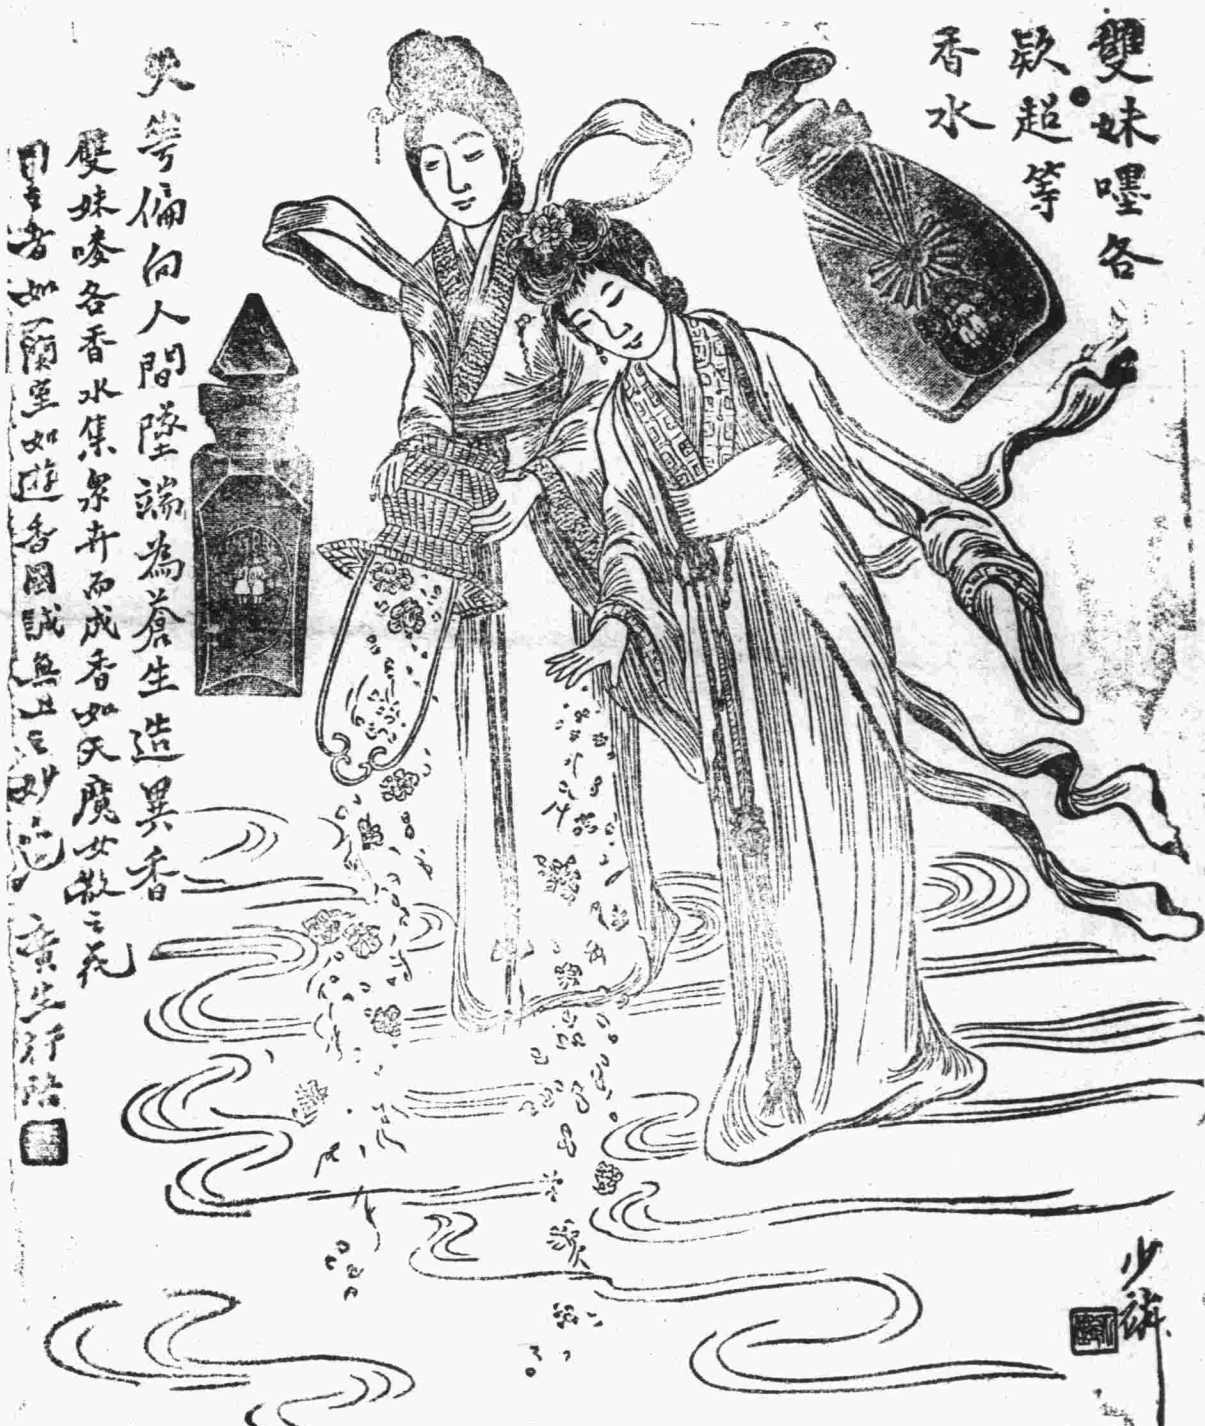 雙妹嚜各
款超等
香水
天花偏向人間墜端為蒼生造異香
雙妹嘜各香水集眾卉而成香如天魔女散之花
用之者如蘭室如遊香國誠無上之妙品
廣生行
少